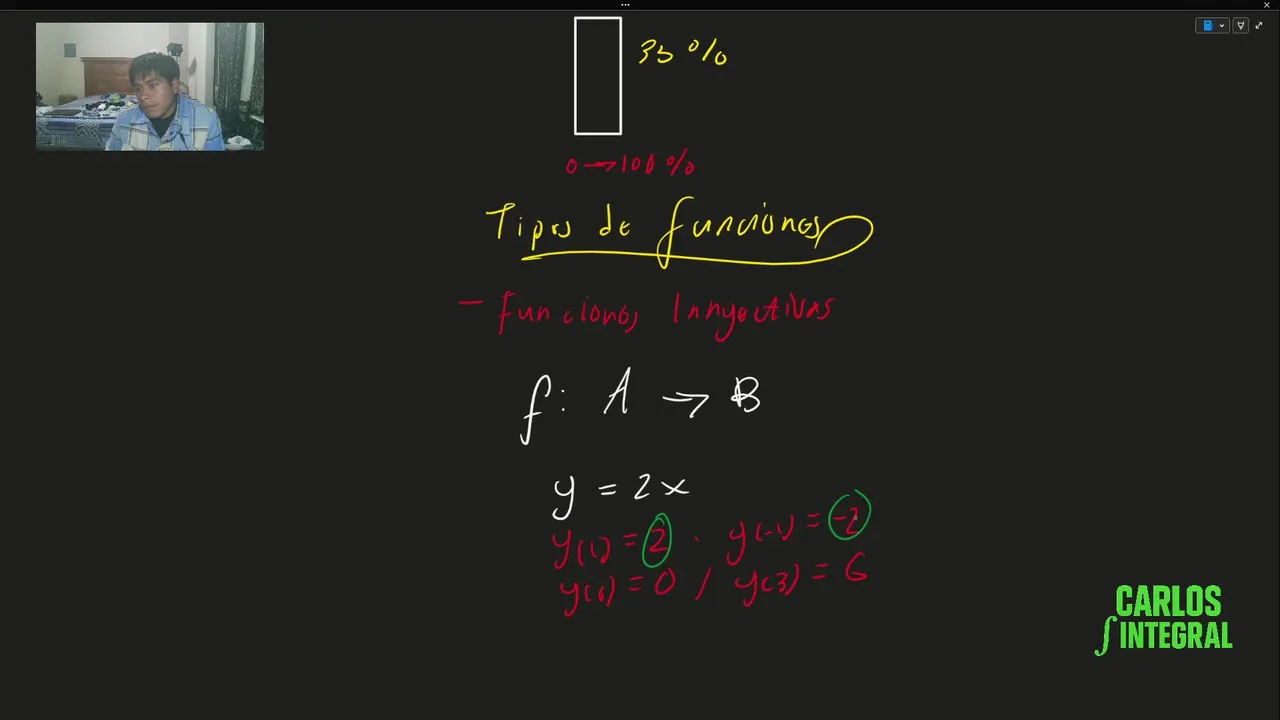 35 %
0 → 100 %
Tipos de funciones
- Funciones Innyectivas
f: A → B
y = 2x
y(1) = 2 . y(-1) = -2
y(0) = 0 / y(3) = 6
CARLOS
∫ INTEGRAL